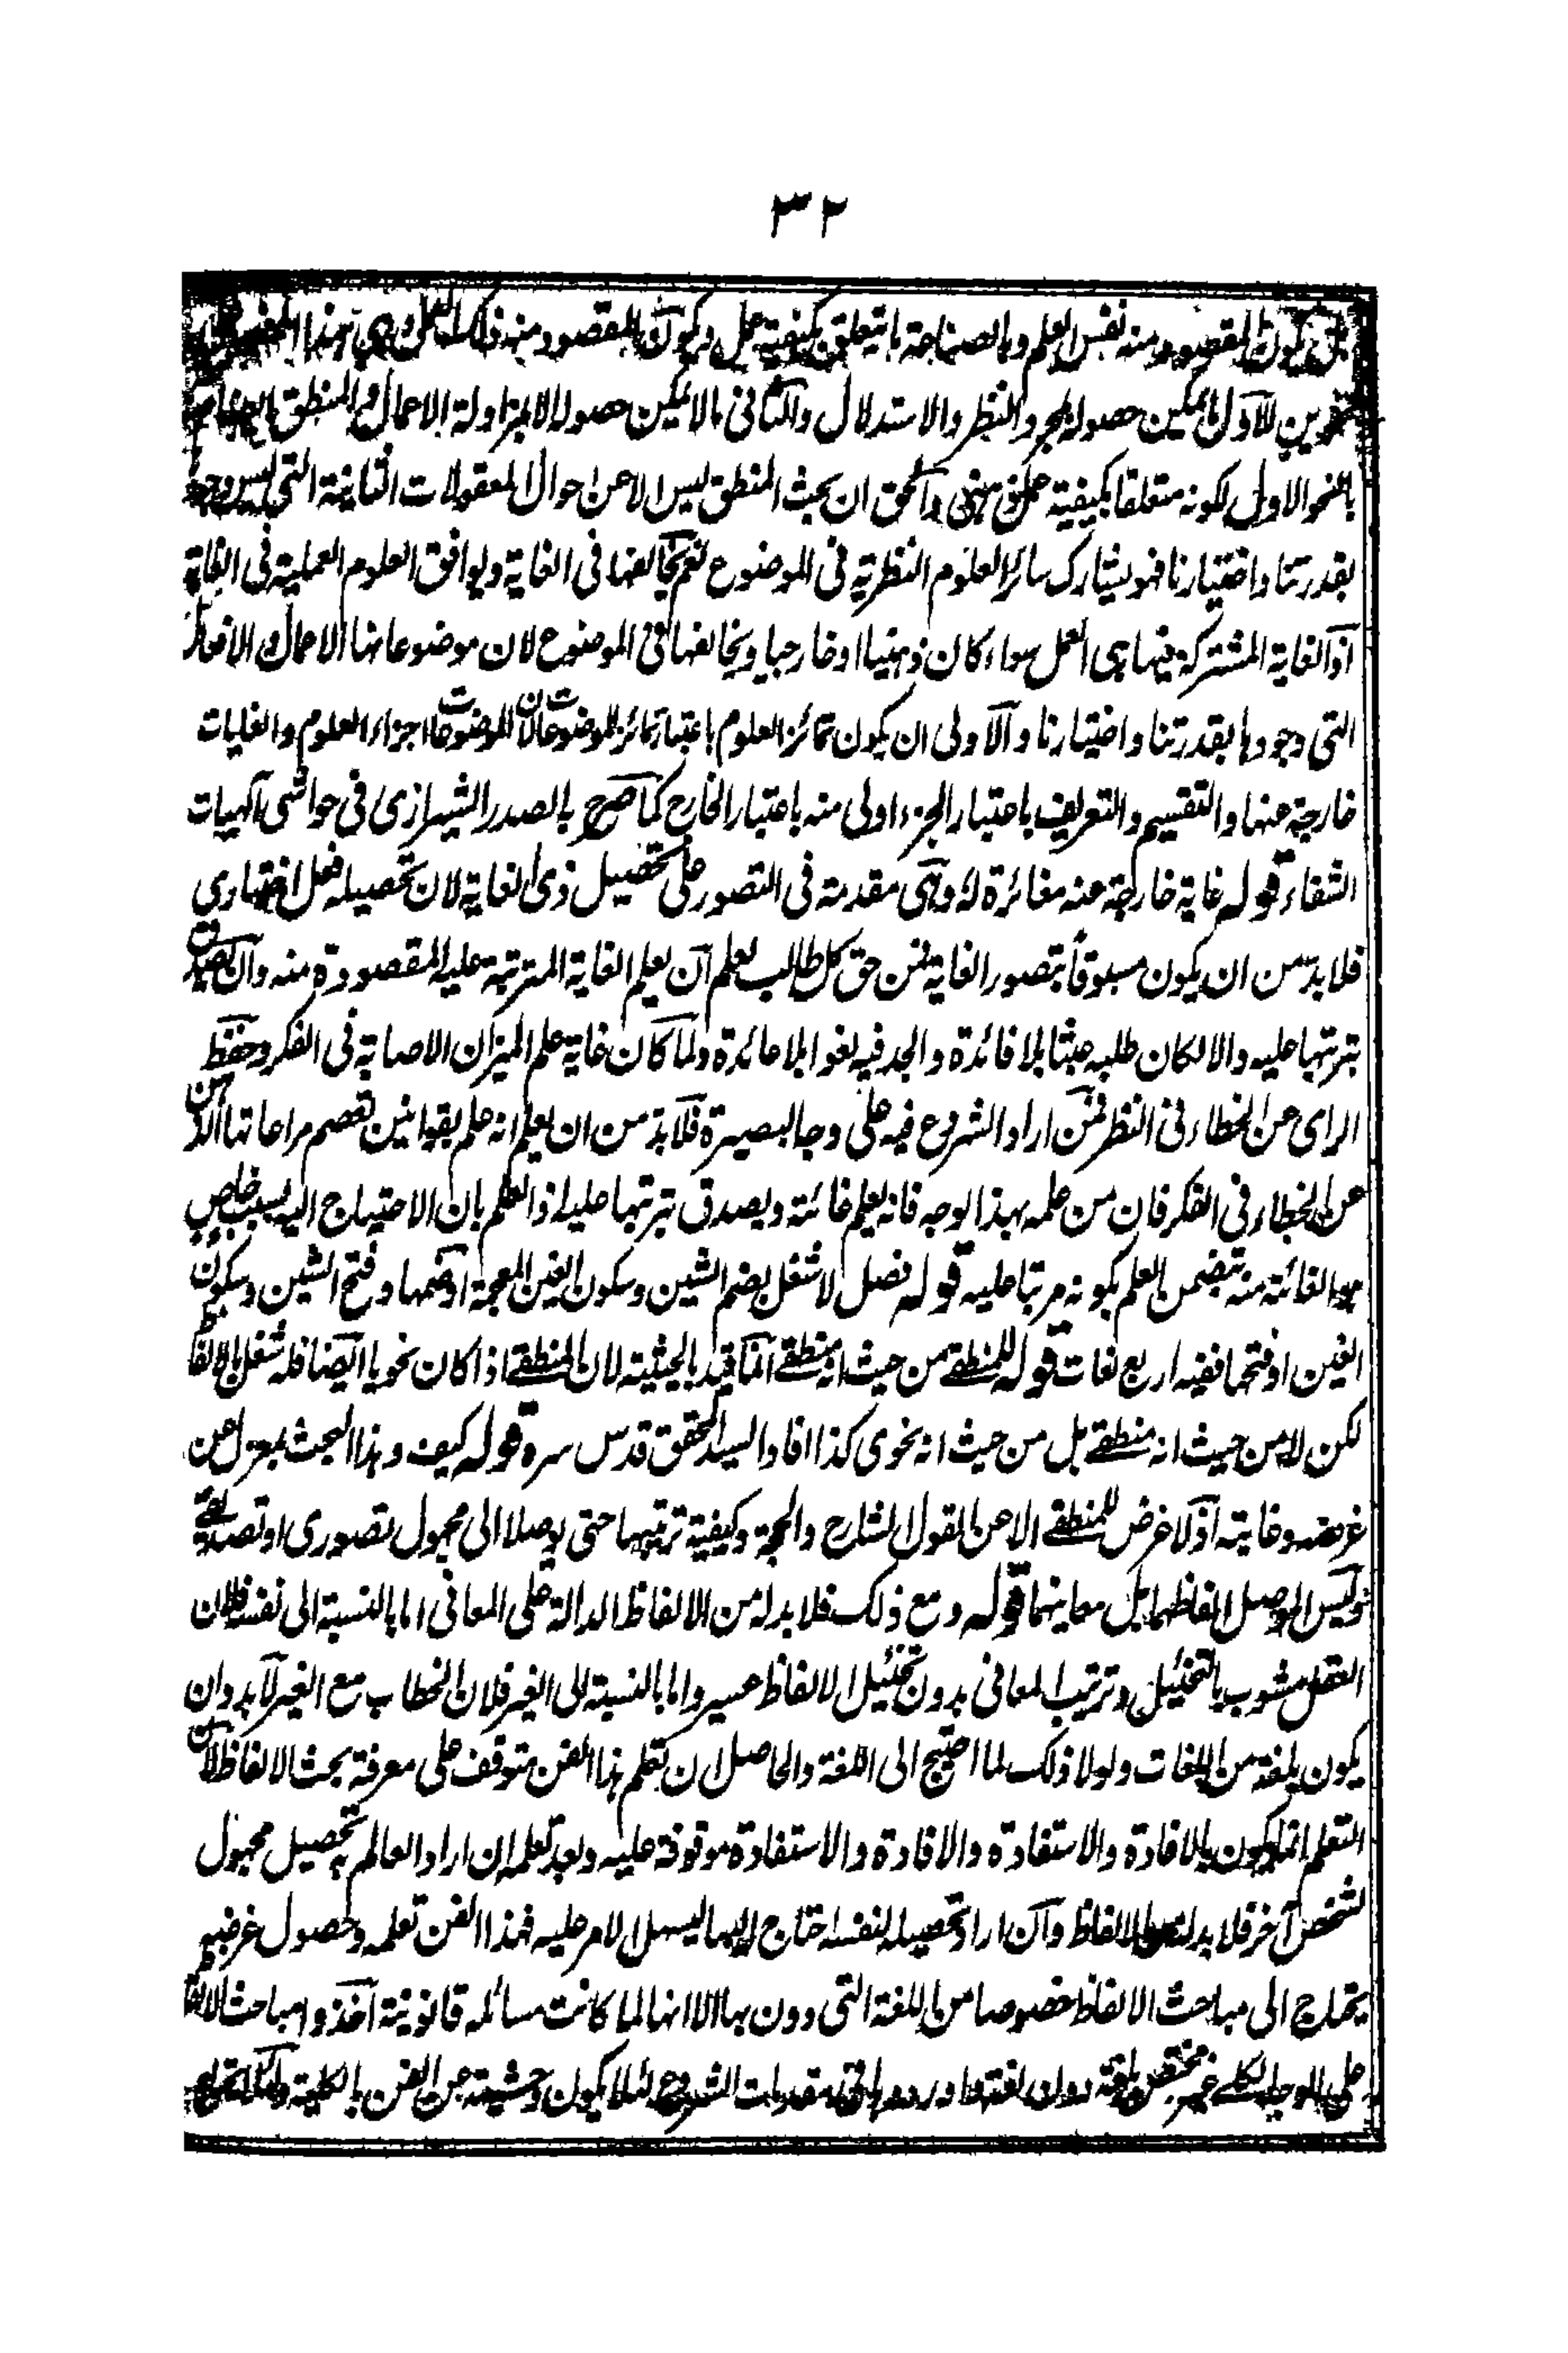 ٣٢
يكون المقصود منه نفس العلم وبالصناعة ما يتعلق بكيفية عمل ويكون المقصود منه ذلك العمل وهى بهذا
الاول ما يمكن حصوله بمجرد النظر والاستدلال والثانى ما لا يمكن حصوله الا بمزاولة الاعمال والمنطق
بالنحو الاول لكونه متعلقا بكيفية عمل ذهنى والحق ان بحث المنطق ليس الا عن احوال المعقولات الثانية التى ليس وجودها
بقدرتنا واختيارنا فهو يشارك سائر العلوم النظرية فى الموضوع نعم يخالفها فى الغاية ويوافق العلوم العملية فى الغاية
اذ الغاية المشتركة فيها هى العمل سواء كان ذهنيا او خارجيا ويخالفها فى الموضوع لان موضوعاتها الاعمال والافعال
التى وجودها بقدرتنا واختيارنا والاولى ان يكون تمائز العلوم باعتبار تمائز الموضوعات لان الموضوعات اجزاء العلوم والغايات
خارجة عنها والتقسيم والتعريف باعتبار الجزء اولى منه باعتبار الخارج كما صرح به الصدر الشيرازى فى حواشى الٓهيات
الشفاء قوله غاية خارجة عنه مغائرة له وهى مقدمة فى التصور على تحصيل ذى الغاية لان تحصيله فعل اختيارى
فلا بد من ان يكون مسبوقا بتصور الغاية فمن حق كل طالب لعلم ان يعلم الغاية المترتبة عليه المقصودة منه وان يصدق
بترتبها عليه والا لكان طلبه عبثا بلا فائدة والجد فيه لغوا بلا عائدة ولما كان غاية علم الميزان الاصابة فى الفكر وحفظ
الراى عن الخطاء فى النظر فمن اراد الشروع فيه على وجه البصيرة فلا بد من ان يعلم انه علم بقوانين تعصم مراعاتها الذهن
عن الخطاء فى الفكر فان من علمه بهذا الوجه فانه يعلم غائته ويصدق بترتبها عليه اذ العلم بان الاحتياج اليه بسبب خاص
هو الغائة منه يتضمن العلم بكونه مرتبا عليه قوله فصل لا شغل بضم الشين وسكون الغين المعجمة او ضمها وفتح الشين وسكون
الغين او فتحها ففيه اربع لغات قوله للمنطقے من حيث انه منطقے انما قيد بالحيثية لان المنطقے اذا كان نحويا ايضا فله شغل بالالفاظ
لكن لا من حيث انه منطقے بل من حيث انه نحوى كذا افاد السيد المحقق قدس سره قوله كيف وهذا البحث بمعزل عن
غرضه وغايته اذ لا غرض للمنطقے الا عن القول الشارح والحجة وكيفية ترتيبها حتى يوصلا الى مجهول تصورى او تصديقے
وليس الموصل الفاظهما بل معانيهما قوله ومع ذلك فلا بد له من الالفاظ الدالة على المعانى اما بالنسبة الى نفسه فلان
العقل مشوب بالتخئيل وترتيب المعانى بدون تخئيل الالفاظ عسير واما بالنسبة الى الغير فلان الخطاب مع الغير لا بد وان
يكون بلغة من اللغات ولولا ذلك لما احتيج الى اللغة والحاصل ان تعلم هذا الفن متوقف على معرفة بحث الالفاظ لان
التعلم انما يكون بالافادة والاستفادة والافادة والاستفادة موقوفة عليه وبعد تعلمه ان اراد العالم به تحصيل مجهول
لشخص آخر فلا بد له من الالفاظ وان اراد تحصيله لنفسه احتاج اليها ليسهل الامر عليه فهذا الفن تعلمه وحصول غرضه
يحتاج الى مباحث الالفاظ خصوصا من اللغة التى دون بها الا انها لما كانت مسائله قانونية اخذوا مباحث الالفاظ
على الوجه الكلے غير مختص بلغة دون لغة واوردوها فى مقدمات الشروع لئلا يكون وحشية عن الفن بالكلية